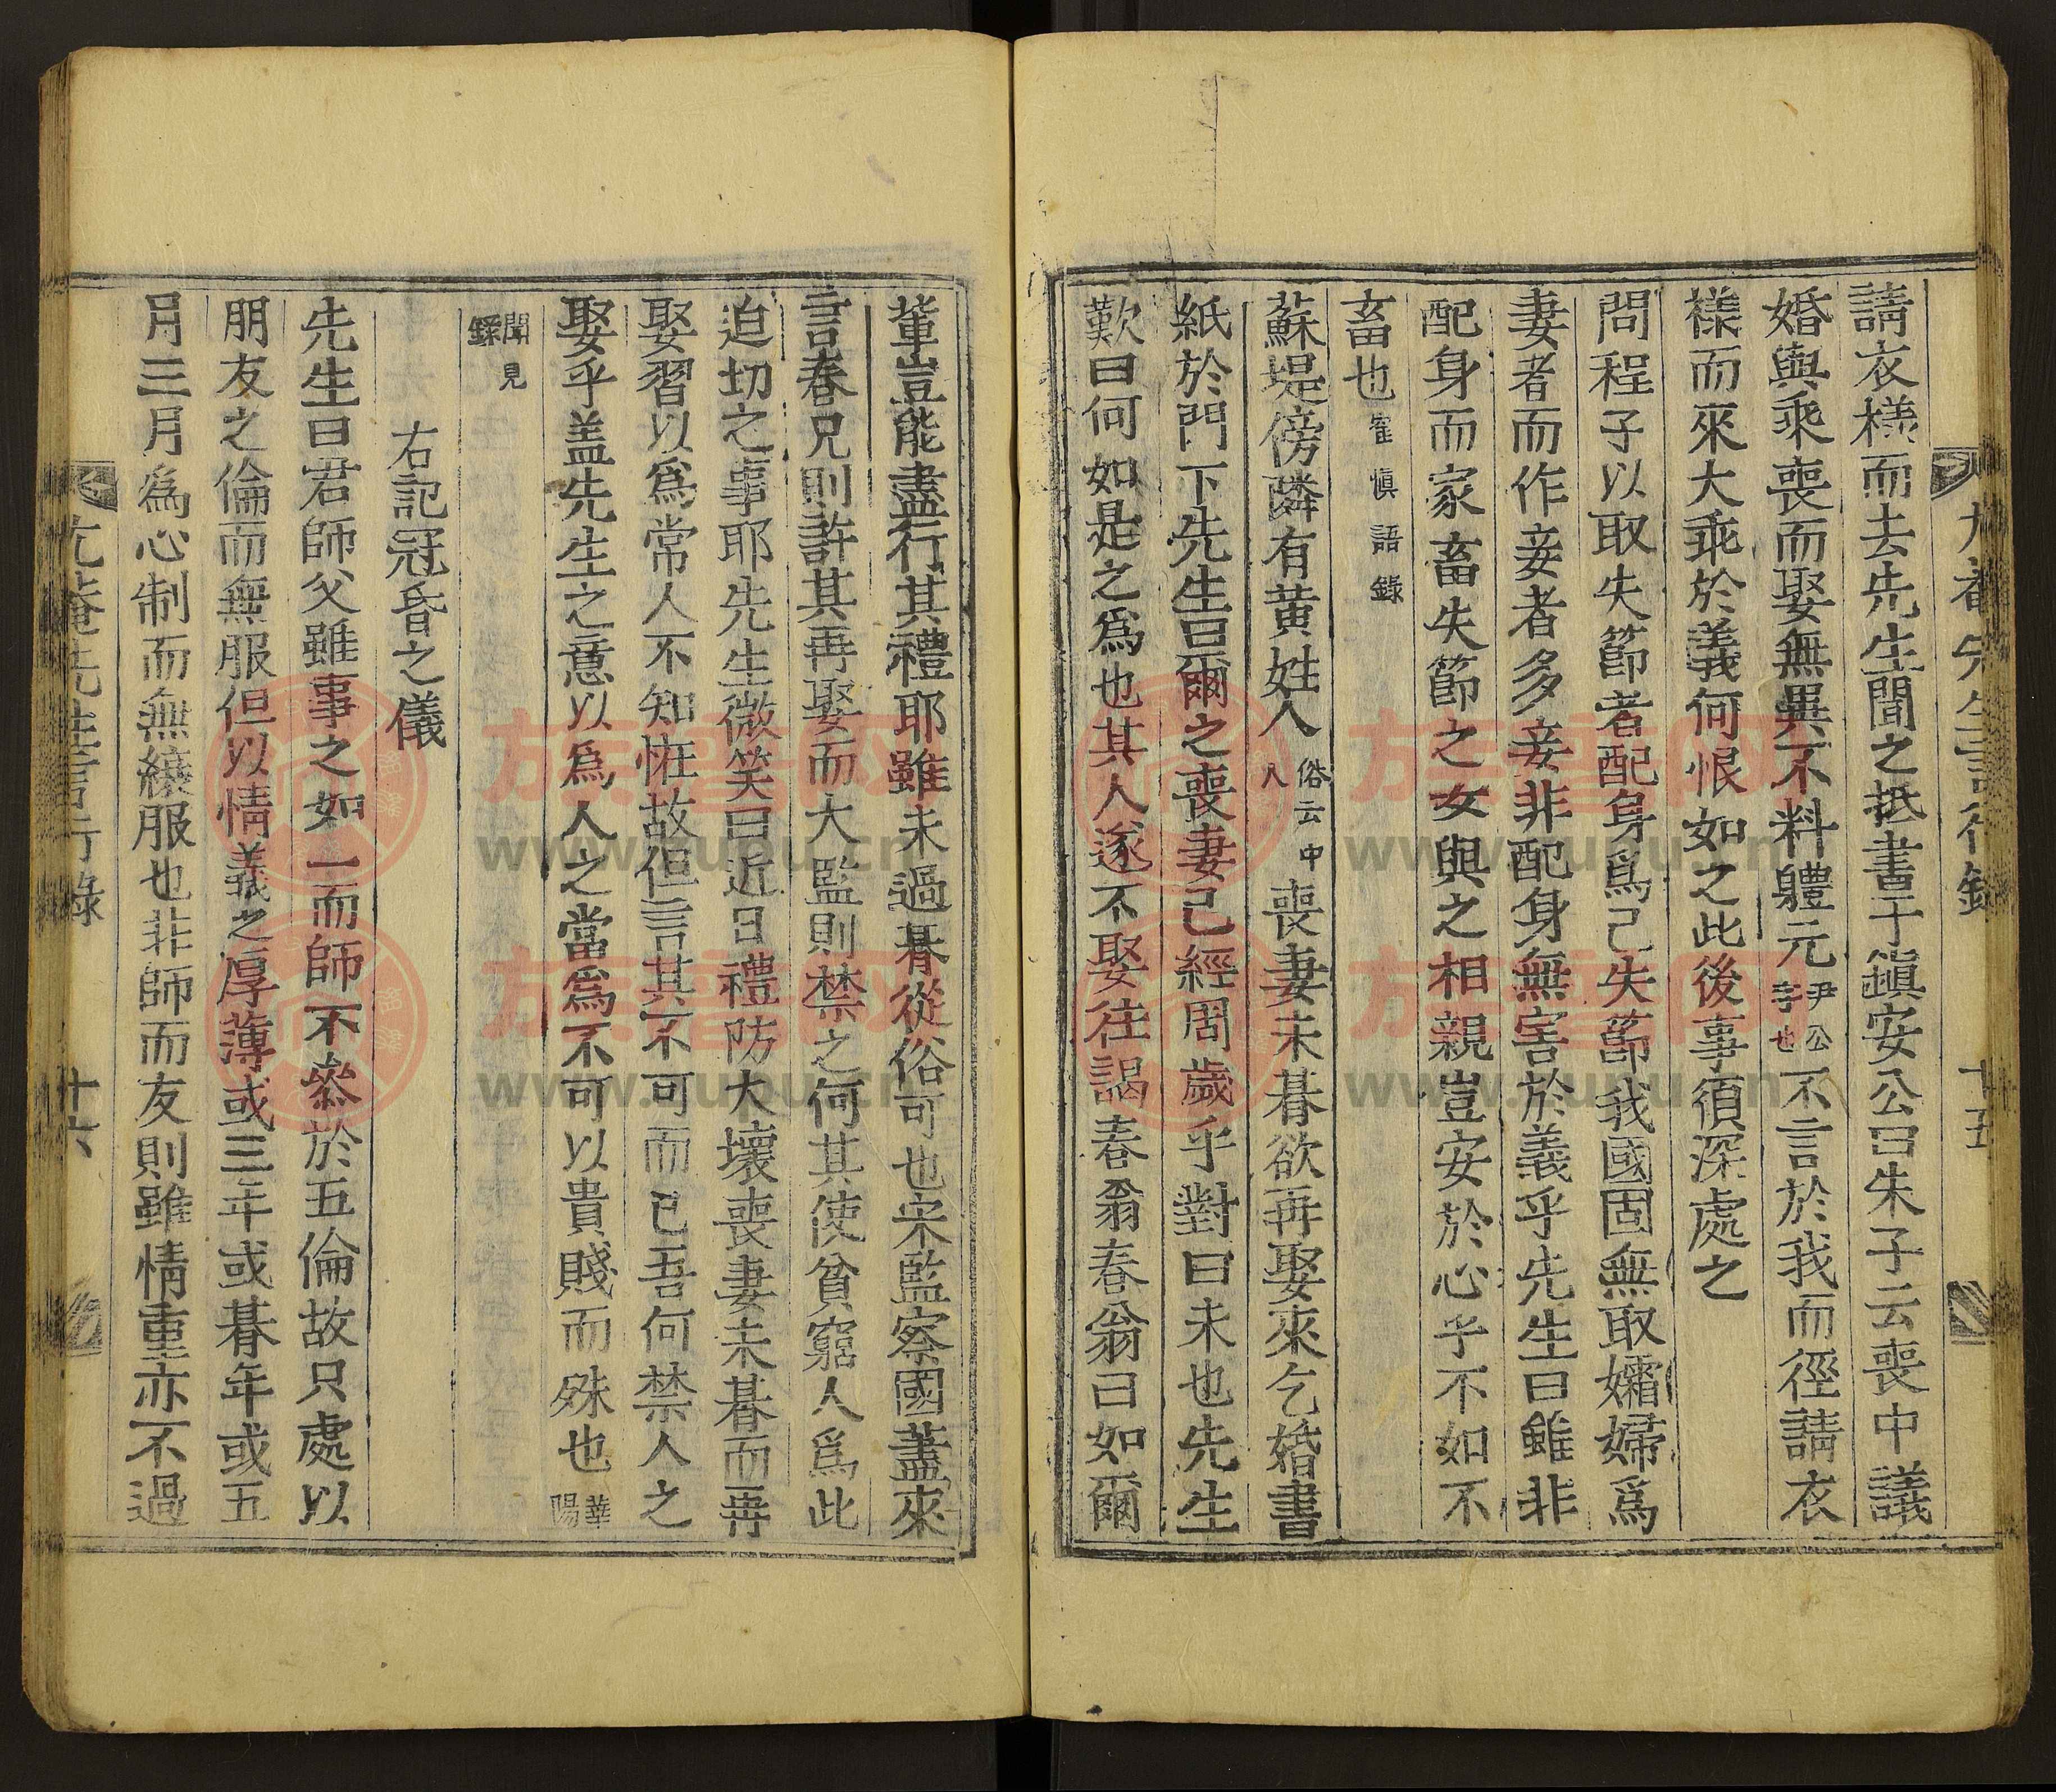 請衣樣而去先生聞之抵書于鎭安公曰朱子云喪中議
婚與乘喪而娶無異不料軆元尹公字也不言於我而徑請衣
㨾而來大乖於義何恨如之此後事須深處之
問程子以取失節者配身爲己失節我國固無取孀婦爲
妻者而作妾者多妾非配身無害於義乎先生曰雖非
配身而家畜失節之女與之相親豈安於心乎不如不
畜也崔愼語錄
蘇堤傍隣有黄姓人俗云中人喪妻未朞欲再娶來乞婚書
紙於門下先生曰爾之喪妻已經周歲乎對曰未也先生
歎曰何如是之爲也其人遂不娶往謁春翁春翁曰如爾
輩豈能盡行其禮耶雖未過朞從俗可也宋監察國蓋來
言春兄則許其再娶而大監則禁之何其使貧窮人爲此
迫切之事耶先生微笑曰近日禮防大壞喪妻未朞而再
娶習以爲常人不知恠故但言其不可而已吾何禁人之
娶乎盖先生之意以爲人之當爲不可以貴賤而殊也華陽
聞見錄
右記冠昏之儀
先生曰君師父雖事之如一而師不叅於五倫故只處以
朋友之倫而無服但以情義之厚薄或三年或朞年或五
月三月爲心制而無縗服也非師而友則雖情重亦不過
尤菴先生言行錄
十五
尤菴先生言行錄
十六
族譜网
www.zupu.cn